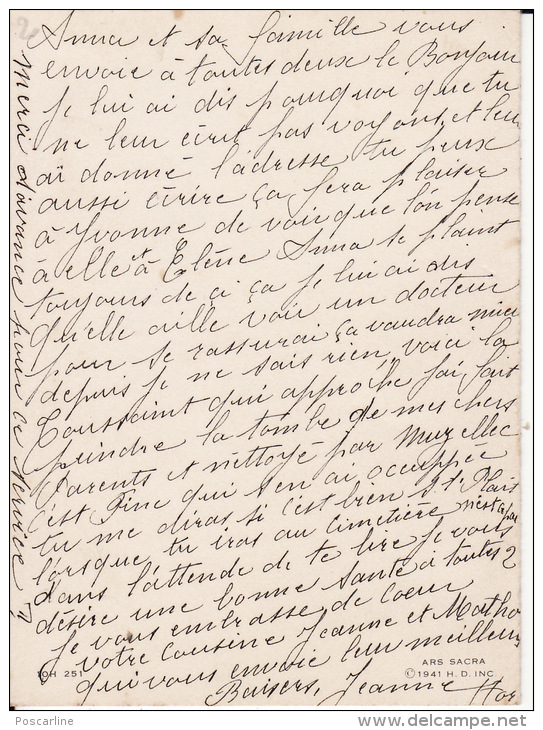 Anna et sa famille vous
envoie à toutes deux le Bonjour
Je lui ai dis pourquoi que tu
ne leur écrit pas voyons, et leur
ai donné l'adresse tu peux
aussi écrire ça fera plaisir
à Yvonne de voir que l'on pense
à elle et à Elène Anna se plaint
toujours de ci ça je lui ai dis
qu'elle aille voir un docteur
pour se rassurai ça vaudra mieu
depuis je ne sais rien, voici la
Toussaint qui approche j'ai fait
peindre la tombe de mes chers
Parents et nettoyé par Muzellec
c'est Fine qui s'en ai occuppée
tu me diras si c'est bien s.t. Plais
lorsque tu iras au cimetière n'est ce pas
dans l'attende de te lire Je vous
désire une bonne santé à toutes 2
Je vous embrasse de Coeur
votre Cousine Jeanne et Matho
qui vous envoie leur meilleurs
Baisers, Jeanne
Merci d'avance pour ce Service ?
10H 251
ARS SACRA
© 1941 H. D. INC.
Poscarline